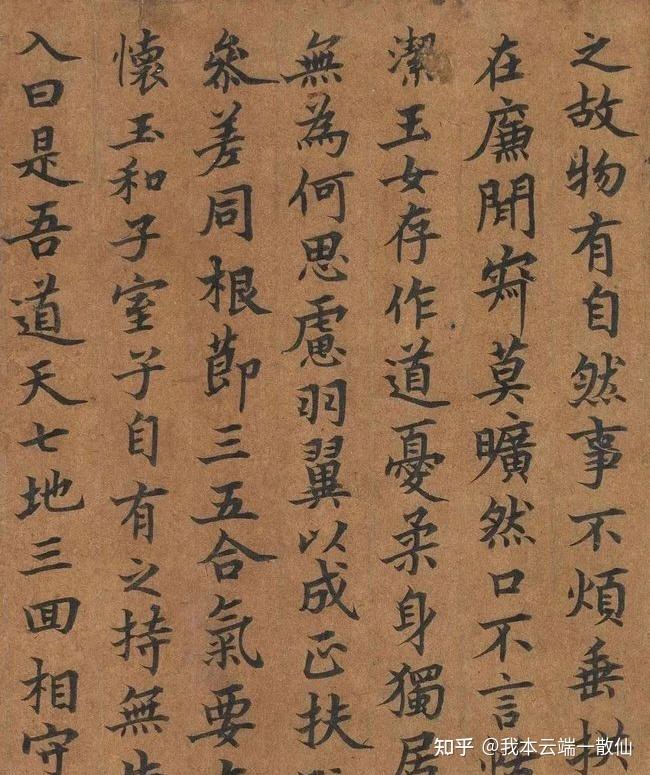 之故物有自然事不煩垂拱
在廉間寂莫曠然口不言
潔玉女存作道憂柔身獨居
無為何思慮羽翼以成正扶
叅差同根莭三五合氣要
懷玉和子室子自有之持無
入曰是吾道天七地三囬相守
知乎 @我本云端一散仙